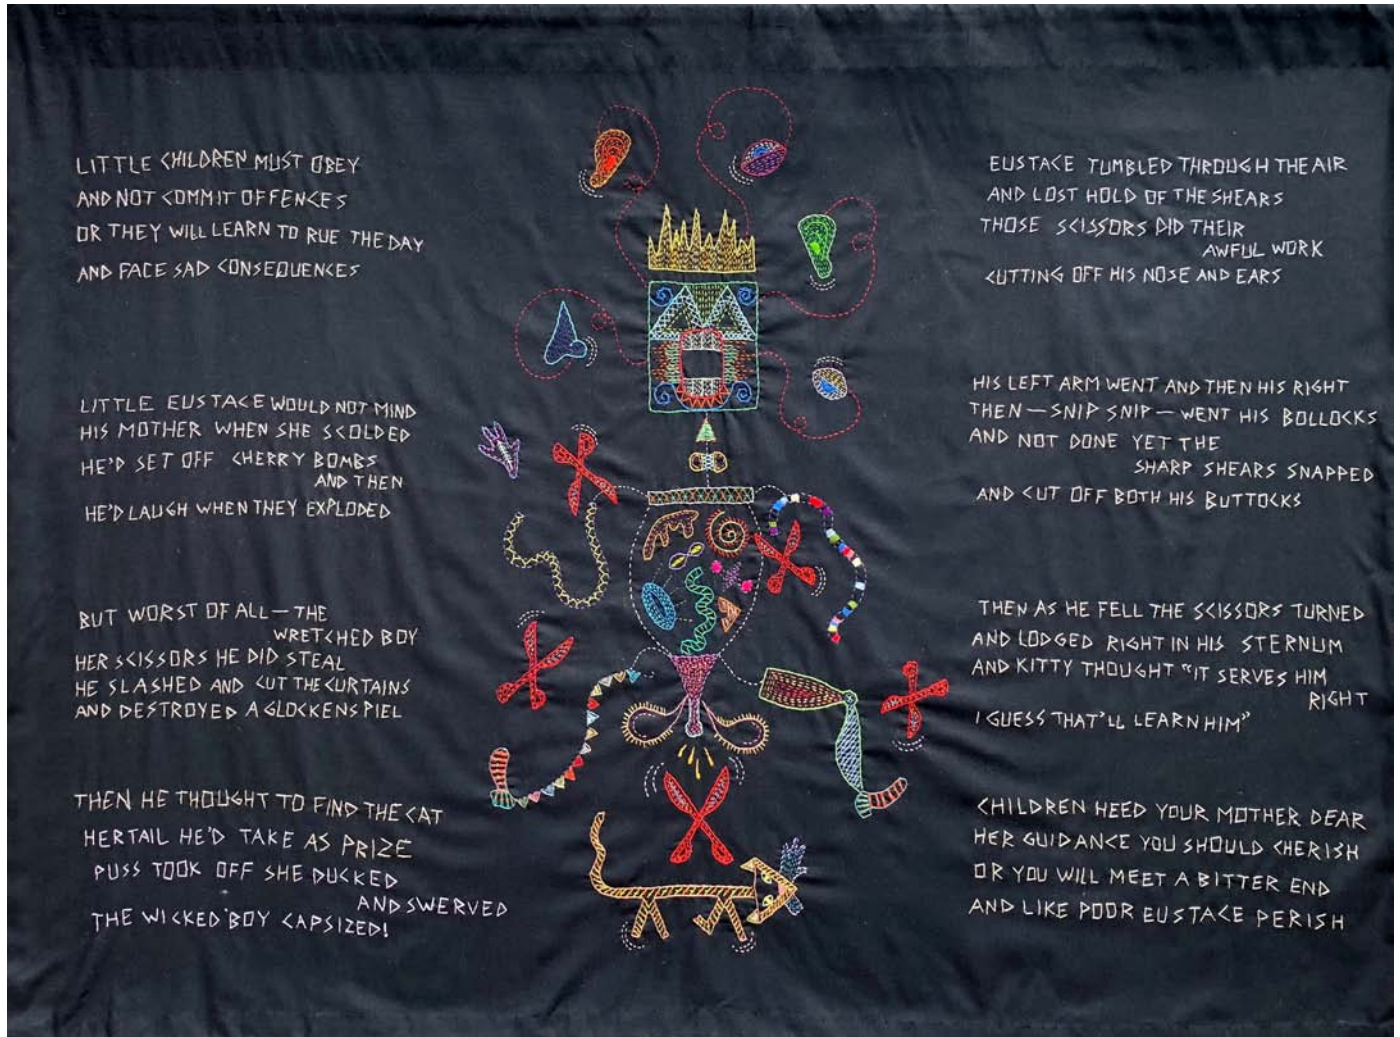 LITTLE CHILDREN MUST OBEY
AND NOT COMMIT OFFENCES
OR THEY WILL LEARN TO RUE THE DAY
AND FACE SAD CONSEQUENCES
LITTLE EUSTACE WOULD NOT MIND
HIS MOTHER WHEN SHE SCOLDED
HE'D SET OFF CHERRY BOMBS
AND THEN
HE'D LAUGH WHEN THEY EXPLODED
BUT WORST OF ALL — THE
WRETCHED BOY
HER SCISSORS HE DID STEAL
HE SLASHED AND CUT THE CURTAINS
AND DESTROYED A GLOCKENSPIEL
THEN HE THOUGHT TO FIND THE CAT
HER TAIL HE'D TAKE AS PRIZE
PUSS TOOK OFF SHE DUCKED
AND SWERVED
THE WICKED BOY CAPSIZED!
EUSTACE TUMBLED THROUGH THE AIR
AND LOST HOLD OF THE SHEARS
THOSE SCISSORS DID THEIR
AWFUL WORK
CUTTING OFF HIS NOSE AND EARS
HIS LEFT ARM WENT AND THEN HIS RIGHT
THEN — SNIP SNIP — WENT HIS BOLLOCKS
AND NOT DONE YET THE
SHARP SHEARS SNAPPED
AND CUT OFF BOTH HIS BUTTOCKS
THEN AS HE FELL THE SCISSORS TURNED
AND LODGED RIGHT IN HIS STERNUM
AND KITTY THOUGHT "IT SERVES HIM
RIGHT
I GUESS THAT'LL LEARN HIM"
CHILDREN HEED YOUR MOTHER DEAR
HER GUIDANCE YOU SHOULD CHERISH
OR YOU WILL MEET A BITTER END
AND LIKE POOR EUSTACE PERISH